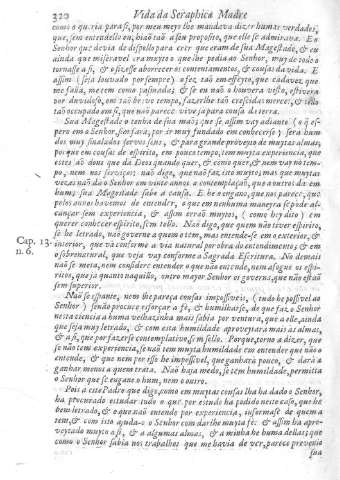 320 Vida da Seraphica Madre
como o queria para si, por meu meyo lhe mandava dizer humas verdades,
que, sem entendello eu, hião tão a seu proposito, que elle se admirava. E o
Senhor que devia de dispollo para crer que eram de sua Magestade, & eu
ainda que miseravel era muyto o que lhe pedia ao Senhor, muy de todo o
tornasse a si, & o fizesse aborrecer os contentamentos, & cousas da vida. E
assim (seja louvado por sempre) o fez tão em effeyto, que cada vez que
me falla, me tem como pasmada; & se eu não o houvera visto, o tivera
por duvidoso, em tão breve tempo, fazerlhe tão crescidas merces, & tello
tão occupado em si, que não parece vive já para cousa da terra.
Sua Magestade o tenha de sua mão; que se assim vay adiante (o que espero
em o Senhor, si fará, por ir muy fundado em conhecerse) será hum
dos muy sinalados servos seus, & para grande proveyto de muytas almas,
porque em cousas de espirito, em pouco tempo, tem muyta experiencia, que
estes são dons que dá Deos quando quer, & como quer, & nem vay no tempo,
nem nos serviços: não digo, que não faz isto muyto; mas que muytas
vezes não dá o Senhor em vinte annos a contemplação, que a outros dá em
hum; sua Magestade sabe a causa. E he engano, que nos parece, que
pelos annos havemos de entender, o que em nenhuma maneyra se póde alcançar
sem experiencia, & assim erraõ muytos, (como hey dito) em
querer conhecer espirito, sem tello. Não digo, que quem não tiver espirito,
se he letrado, não governe a quem o tem, mas entende-se em o exterior, &
interior, que vá conforme a via natural por obra do entendimento; & em
o sobrenatural, que veja vay conforme a Sagrada Escritura. No demais
não se mata, nem considere entender o que não entende, nem afogue os espiritos,
que já quanto naquillo, outro mayor Senhor os governa, que não estão
sem superior.
Cap. 13.
n. 6.
Não se espante, nem lhe pareça cousas impossiveis, (tudo he possivel ao
Senhor) senão procure esforçar a fé, & humilharse, de que faz o Senhor
nesta ciencia a huma velhazinha mais sabia por ventura, que a elle, ainda
que seja muy letrado, & com esta humildade aproveytará mais as almas,
& a si, que por fazerse contemplativo, sem sello. Porque, torno a dizer, que
se não tem experiencia, se não tem muyta humildade em entender que não o
entende, & que nem por isso he impossivel, que ganhará pouco, & dará a
ganhar menos a quem trata. Não haja medo, se tem humildade, permitta
o Senhor que se engane o hum, nem o outro.
Pois a este Padre que digo, como em muytas cousas lha ha dado o Senhor,
ha procurado estudar tudo o que por estudo ha podido neste caso, que he
bom letrado, & o que não entende por experiencia, informase de quem a
tem, & com isto ajuda-o o Senhor com darlhe muyta fé: & assim ha aproveytado
muyto a si, & a algumas almas, & a minha he huma dellas; que
como o Senhor sabia nos trabalhos que me havia de ver, parece proveria
sua